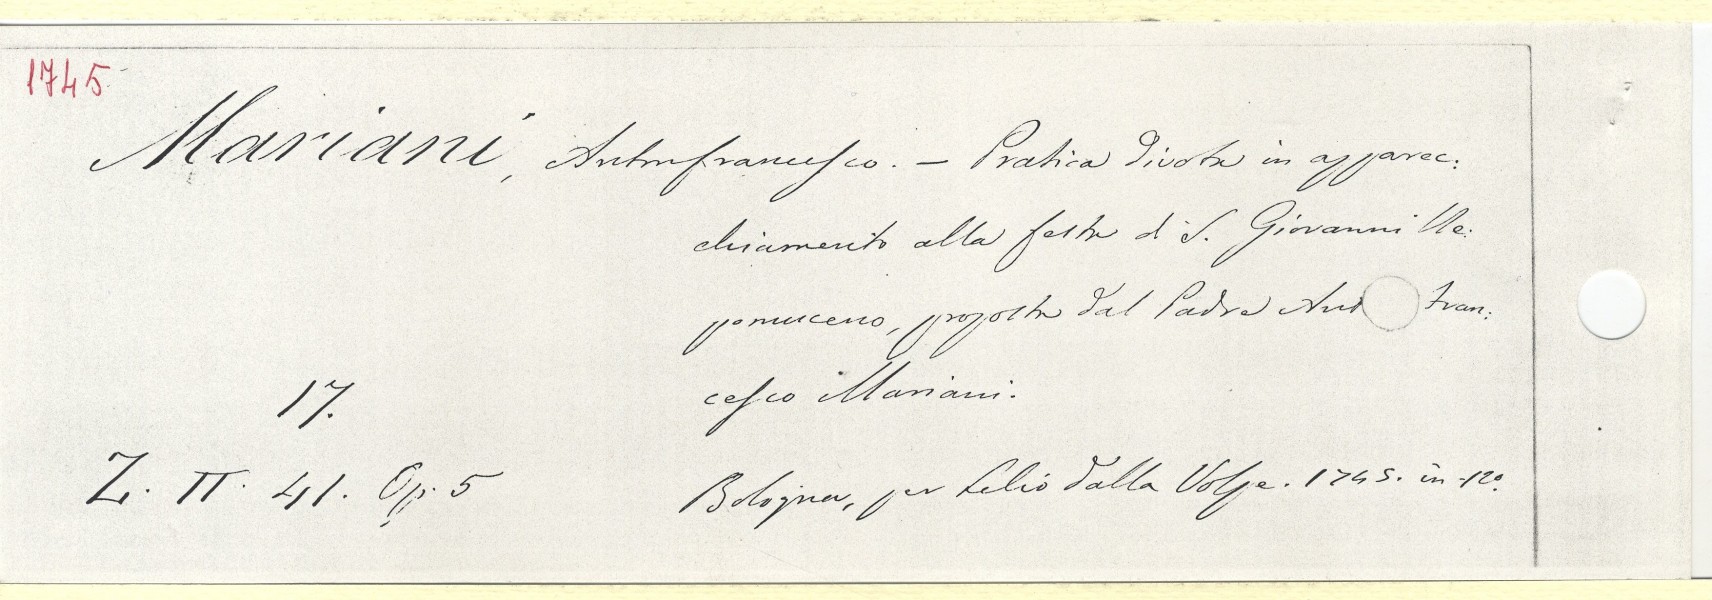 1745
Mariani, Antonfrancesco. — Pratica divota in apparec:
chiamento alla festa di S. Giovanni Ne:
pomuceno, proposta dal Padre Ant Fran:
cesco Mariani.
17.
Z. II. 41. Op. 5
Bologna, per Lelio dalla Volpe. 1745. in-12º.